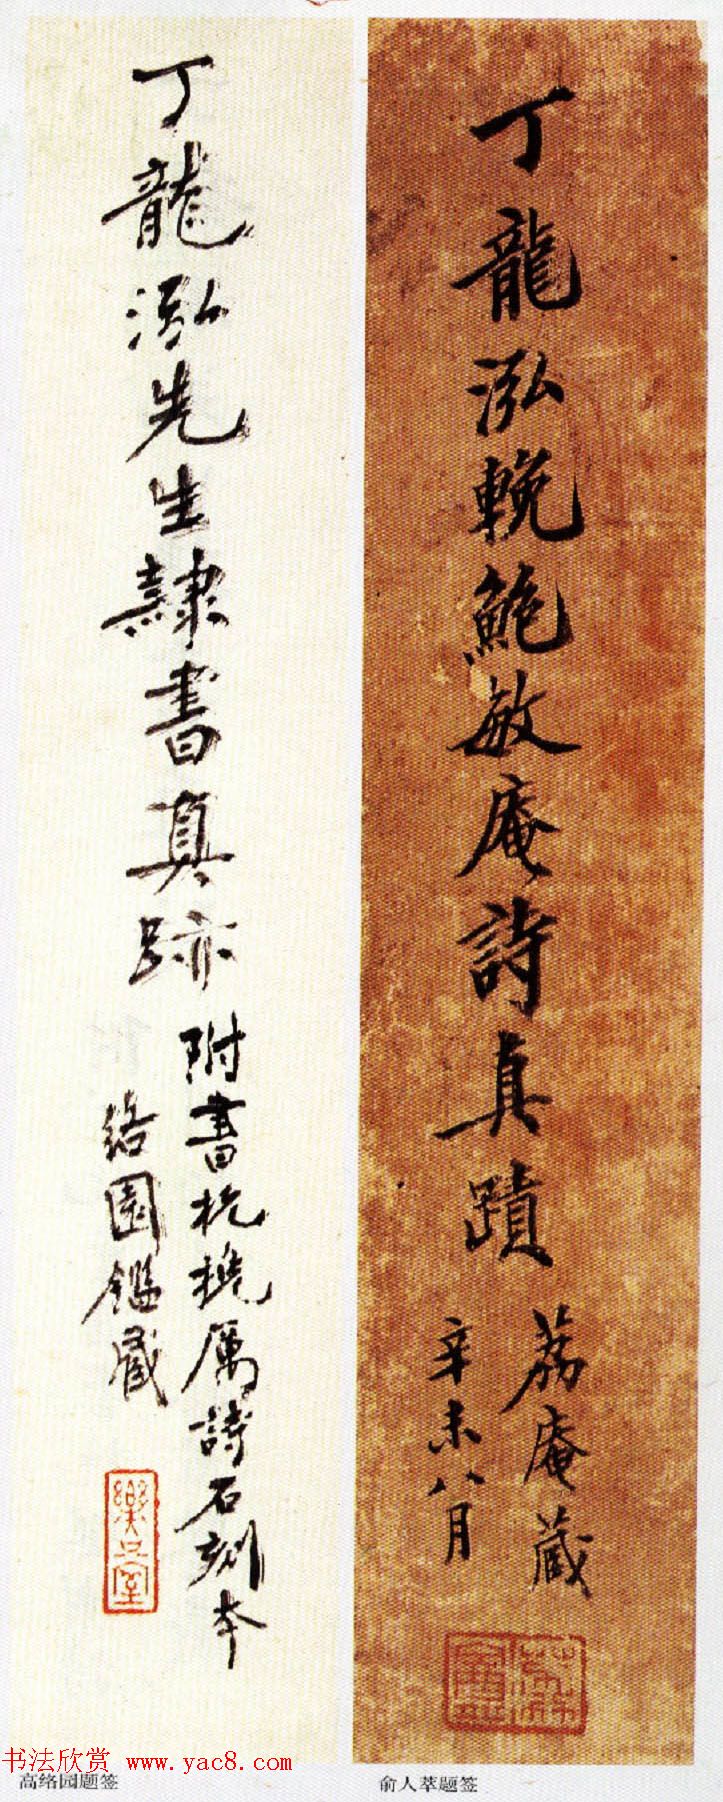 丁龍泓輓鮑敏庵詩真蹟
荔庵藏
辛未八月
丁龍泓先生隸書真跡
附書杭挽厲詩石刻本
络園鑑藏
樂只室
书法欣赏 www.yac8.com
高络园题签
俞人萃题签